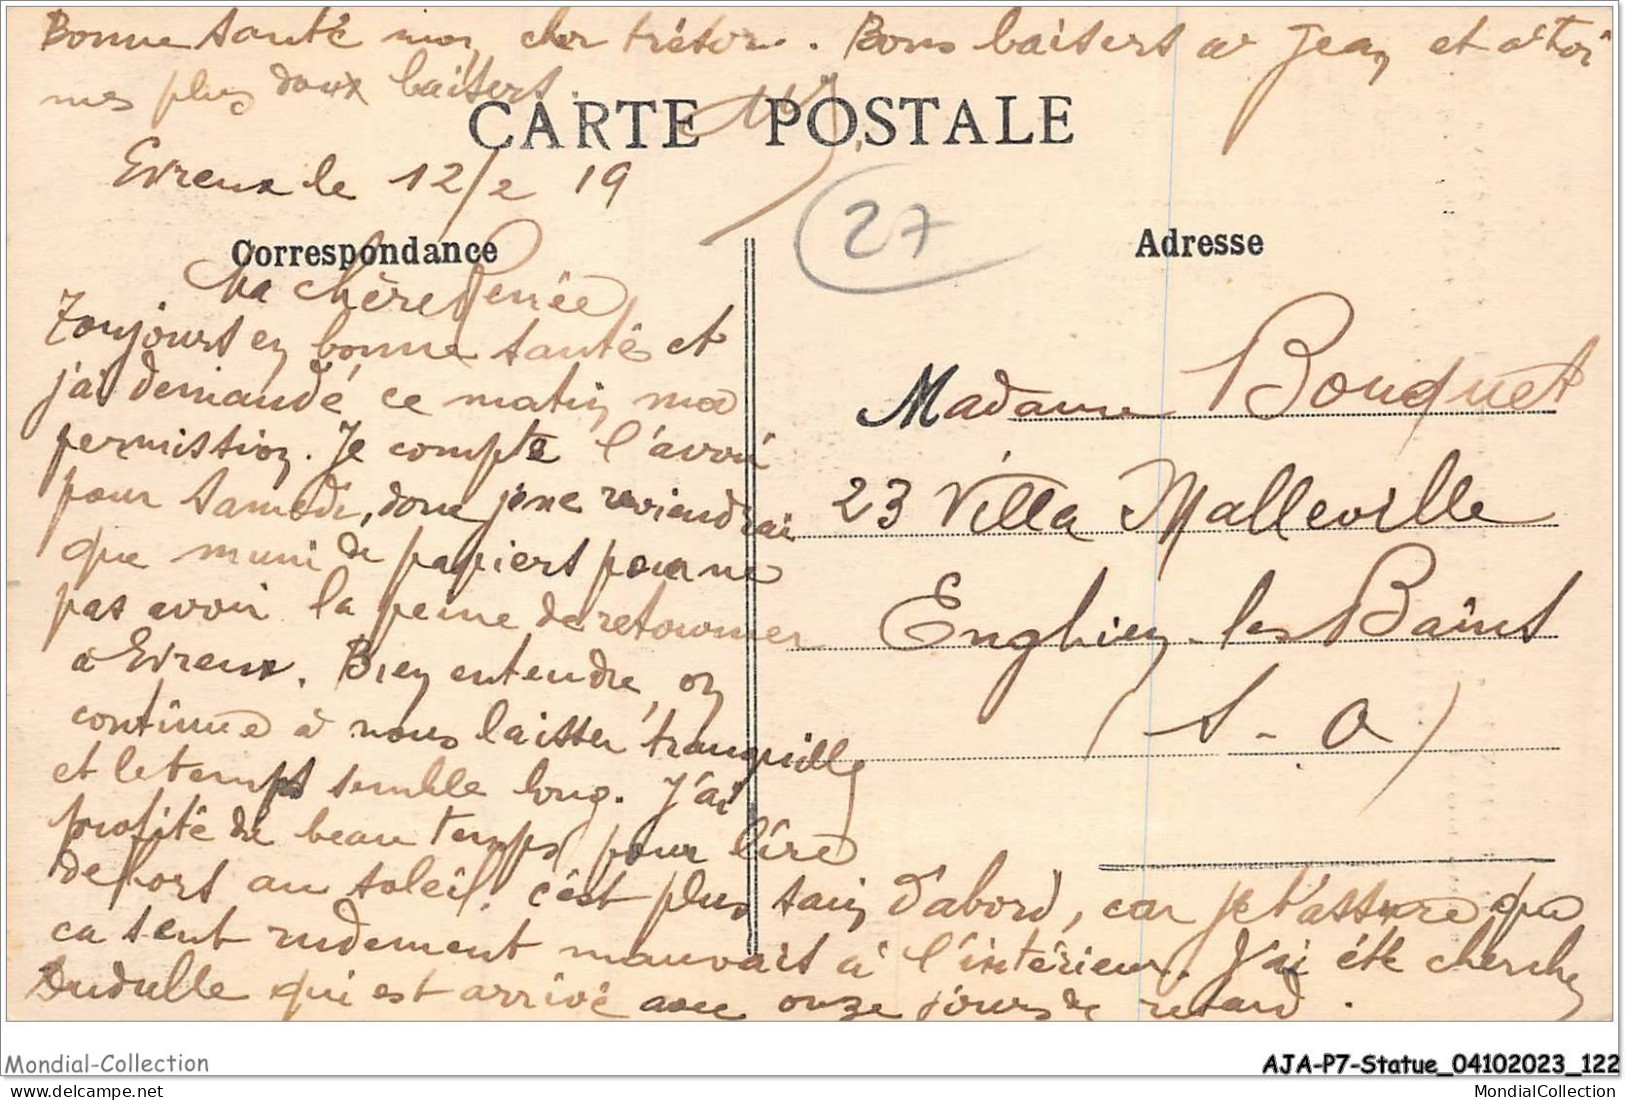 Bonne santé mon cher trésor. Bons baisers à Jean et à toi
mes plus doux baisers.
CARTE POSTALE
Evreux le 12/2 19
27
Correspondance
Adresse
Ma chère Renée
Toujours en bonne santé et
j'ai demandé ce matin ma
permission. Je compte l'avoir
pour Samedi, donc je ne reviendrai
que muni de papiers pour ne
pas avoir la peine de retourner
à Evreux. Bien entendre, on
continue à nous laisser tranquille
et le temps semble long. J'ai
profité de beau temps pour lire
dehors au soleil. c'est plus sain d'abord, car je t'assure que
ca sent rudement mauvais à l'intérieur. J'ai été cherché
Dudulle qui est arrivé avec onze jours de retard.
Madame Bouquet
23 Villa Malleville
Enghien-les Bains
(S-O)
Mondial-Collection
AJA-P7-Statue_04102023_122
MondialCollection